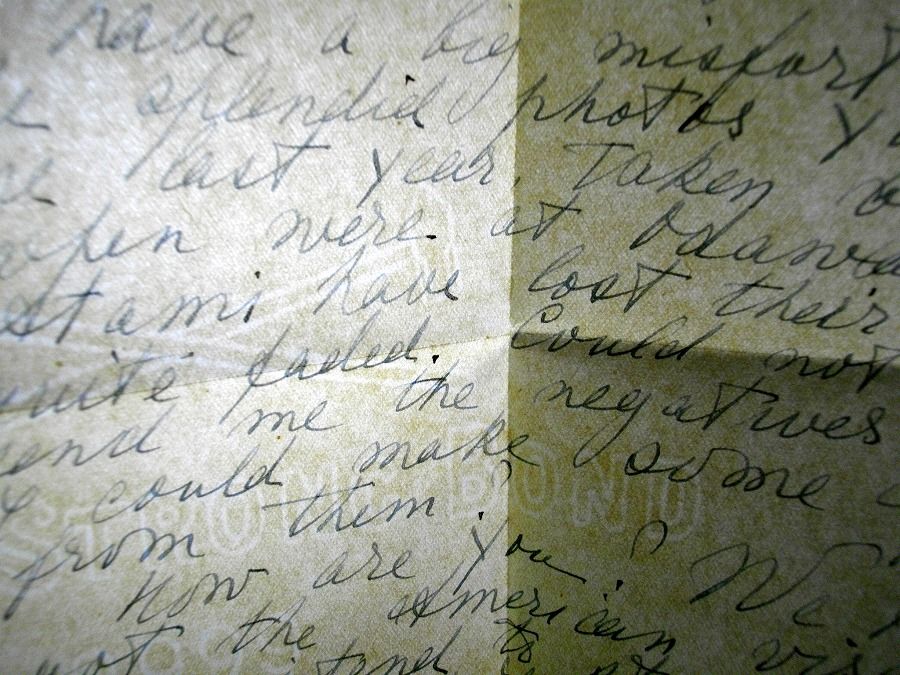 have a big misfort
splendid photos y
ce last year, Taken
when were at Odawa
Atami have lost their
quite faded. Could not
send me the negatives
I could make some c
from them?
How are you? We
not the American vis
STRONG BOND